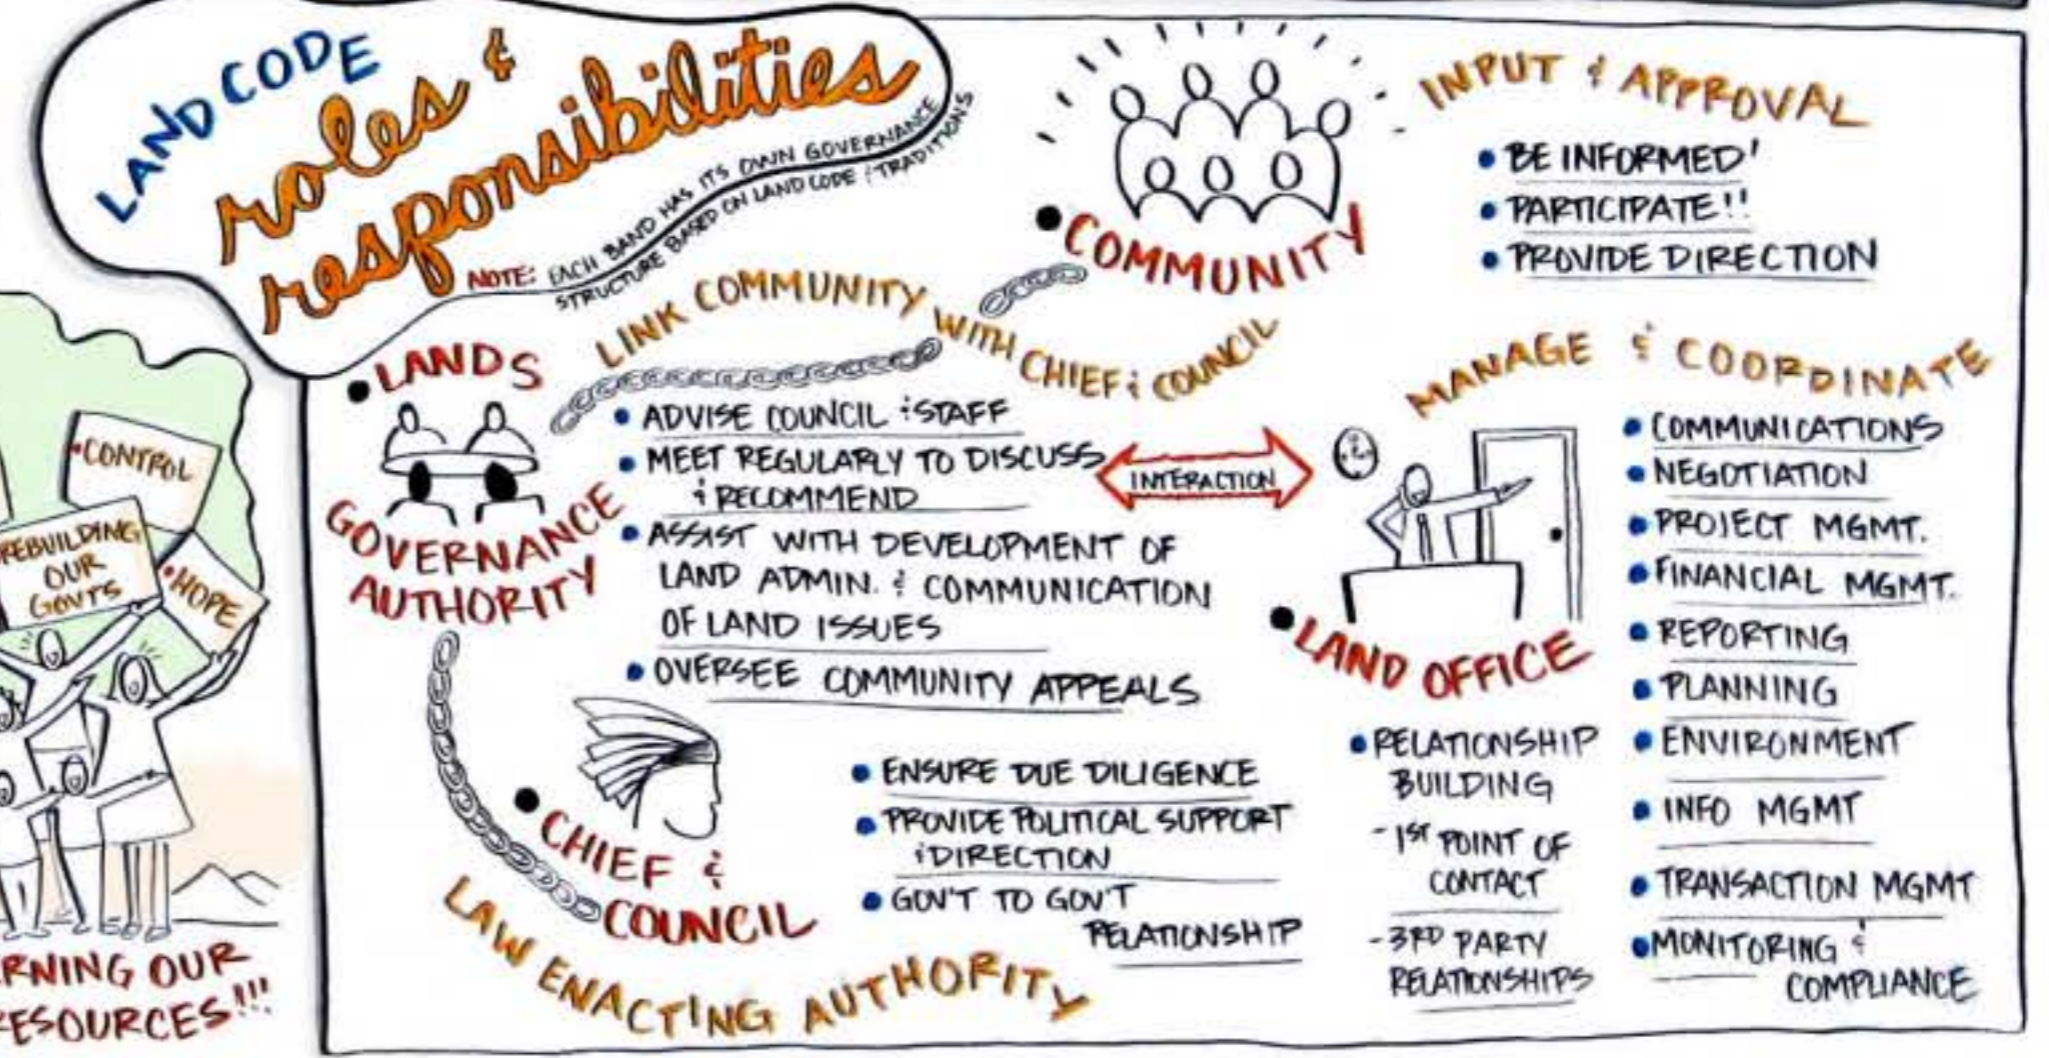 LAND CODE
roles &
responsibilities
NOTE: EACH BAND HAS ITS OWN GOVERNANCE
STRUCTURE BASED ON LAND CODE & TRADITIONS
• COMMUNITY
INPUT & APPROVAL
• BE INFORMED!
• PARTICIPATE!!
• PROVIDE DIRECTION
LINK COMMUNITY WITH CHIEF & COUNCIL
• LANDS
GOVERNANCE
AUTHORITY
• ADVISE COUNCIL & STAFF
• MEET REGULARLY TO DISCUSS
& RECOMMEND
• ASSIST WITH DEVELOPMENT OF
LAND ADMIN. & COMMUNICATION
OF LAND ISSUES
• OVERSEE COMMUNITY APPEALS
INTERACTION
MANAGE & COORDINATE
• LAND OFFICE
• COMMUNICATIONS
• NEGOTIATION
• PROJECT MGMT.
• FINANCIAL MGMT.
• REPORTING
• PLANNING
• ENVIRONMENT
• INFO MGMT
• TRANSACTION MGMT
• MONITORING &
COMPLIANCE
• RELATIONSHIP
BUILDING
- 1ST POINT OF
CONTACT
- 3RD PARTY
RELATIONSHIPS
• CHIEF &
COUNCIL
LAW ENACTING AUTHORITY
• ENSURE DUE DILIGENCE
• PROVIDE POLITICAL SUPPORT
& DIRECTION
• GOV'T TO GOV'T
RELATIONSHIP
• CONTROL
REBUILDING
OUR
GOVTS
• HOPE
ERNING OUR
RESOURCES!!!